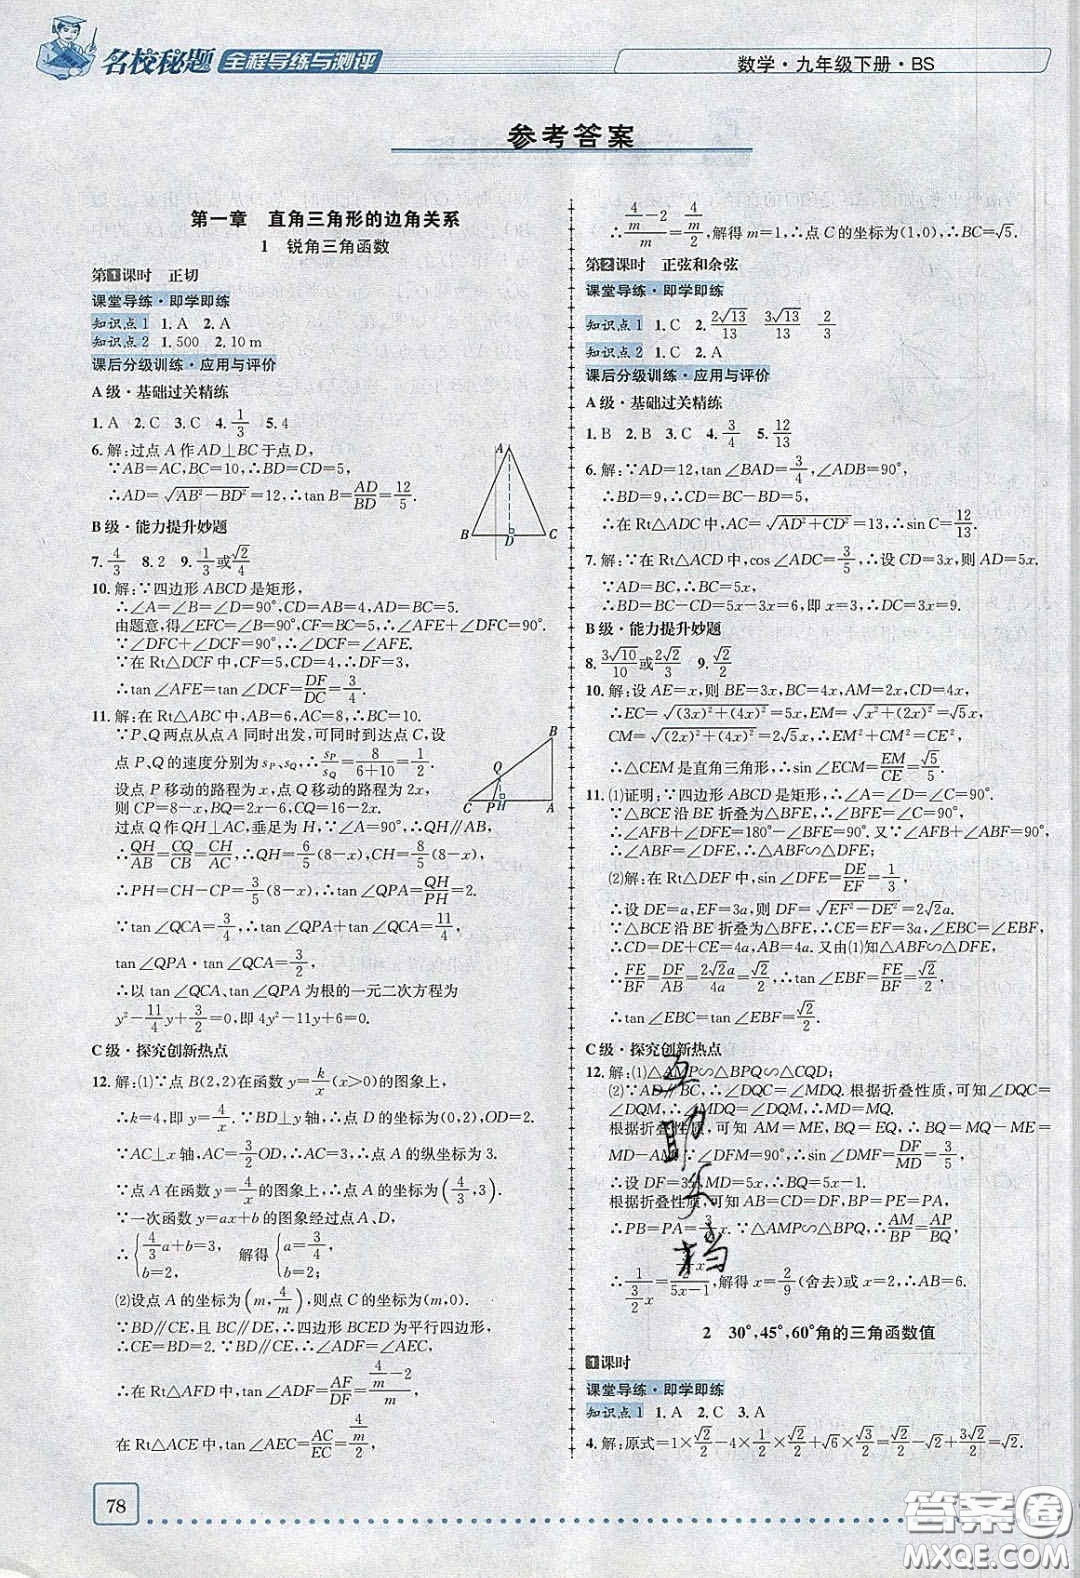 名校秘题 全程导练与测评
数学·九年级下册·BS
参考答案
第一章 直角三角形的边角关系
1 锐角三角函数
第1课时 正切
课堂导练·即学即练
知识点1 1.A 2.A
知识点2 1.500 2.10 m
课后分级训练·应用与评价
A级·基础过关精练
1.A 2.C 3.C 4.1/3 5.4
6.解:过点A作AD⊥BC于点D,
∵AB=AC,BC=10,∴BD=CD=5.
∴AD=√(AB²−BD²)=12,∴tan B=AD/BD=12/5.
A
B D C
B级·能力提升妙题
7.4/3 8.2 9.1/3或√2/4
10.解:∵四边形ABCD是矩形,
∴∠A=∠B=∠D=90°,CD=AB=4,AD=BC=5.
由题意,得∠EFC=∠B=90°,CF=BC=5,∴∠AFE+∠DFC=90°.
∵∠DFC+∠DCF=90°,∴∠DCF=∠AFE.
∵在Rt△DCF中,CF=5,CD=4,∴DF=3.
∴tan∠AFE=tan∠DCF=DF/DC=3/4.
11.解:在Rt△ABC中,AB=6,AC=8,∴BC=10.
∵P、Q两点从点A同时出发,可同时到达点C,设
点P、Q的速度分别为s_P、s_Q,∴s_P/s_Q=8/(6+10)=1/2.
设点P移动的路程为x,点Q移动的路程为2x,
则CP=8−x,BQ=2x−6,CQ=16−2x.
过点Q作QH⊥AC,垂足为H,∵∠A=90°,∴QH∥AB,
∴QH/AB=CQ/CB=CH/AC,∴QH=6/5(8−x),CH=8/5(8−x),
∴PH=CH−CP=3/5(8−x),∴tan∠QPA=QH/PH=2.
∵tan∠QCA=3/4,∴tan∠QPA+tan∠QCA=11/4,
tan∠QPA·tan∠QCA=3/2,
∴以tan∠QCA、tan∠QPA为根的一元二次方程为
y²−11/4y+3/2=0,即4y²−11y+6=0.
B
Q
C P H A
C级·探究创新热点
12.解:(1)∵点B(2,2)在函数y=k/x(x>0)的图象上,
∴k=4,即y=4/x.∵BD⊥y轴,∴点D的坐标为(0,2),OD=2.
∵AC⊥x轴,AC=3/2OD,∴AC=3,∴点A的纵坐标为3.
∵点A在函数y=4/x的图象上,∴点A的坐标为(4/3,3).
∵一次函数y=ax+b的图象经过点A、D,
∴{4/3a+b=3, b=2. 解得{a=3/4, b=2.
(2)设点A的坐标为(m,4/m),则点C的坐标为(m,0).
∵BD∥CE,且BC∥DE,∴四边形BCED为平行四边形,
∴CE=BD=2.∵BD∥CE,∴∠ADF=∠AEC.
∴在Rt△AFD中,tan∠ADF=AF/DF=(4/m−2)/m,
在Rt△ACE中,tan∠AEC=AC/EC=(4/m)/2,
∴(4/m−2)/m=(4/m)/2,解得m=1,∴点C的坐标为(1,0),∴BC=√5.
第2课时 正弦和余弦
课堂导练·即学即练
知识点1 1.C 2.2√13/13 3√13/13 2/3
知识点2 1.C 2.A
课后分级训练·应用与评价
A级·基础过关精练
1.B 2.B 3.C 4.3/4 5.12/13
6.解:∵AD=12,tan∠BAD=3/4,∠ADB=90°,
∴BD=9,∴CD=BC−BD=5,
∴在Rt△ADC中,AC=√(AD²+CD²)=13,∴sin C=12/13.
7.解:∵在Rt△ACD中,cos∠ADC=3/5,∴设CD=3x,AD=5x.
∵AD=BC,∴BC=5x,
∴BD=BC−CD=5x−3x=6,即x=3,∴CD=9.
B级·能力提升妙题
8.3√10/10或2√2/3 9.√2/2
10.解:设AE=x,则BE=3x,BC=4x,AM=2x,CD=4x,
∴EC=√((3x)²+(4x)²)=5x,EM=√(x²+(2x)²)=√5x,
CM=√((2x)²+(4x)²)=2√5x,∴EM²+CM²=CE²,
∴△CEM是直角三角形,∴sin∠ECM=EM/CE=√5/5.
11.(1)证明:∵四边形ABCD是矩形,∴∠A=∠D=∠C=90°.
∵△BCE沿BE折叠为△BFE,∴∠BFE=∠C=90°,
∴∠AFB+∠DFE=180°−∠BFE=90°.又∵∠AFB+∠ABF=90°,
∴∠ABF=∠DFE,∴△ABF∽△DFE;
(2)解:在Rt△DEF中,sin∠DFE=DE/EF=1/3,
∴设DE=a,EF=3a,则DF=√(EF²−DE²)=2√2a.
∵△BCE沿BE折叠为△BFE,∴CE=EF=3a,∠EBC=∠EBF,
∴CD=DE+CE=4a,AB=4a.又由(1)知△ABF∽△DFE,
∴FE/BF=DF/AB=2√2a/4a=√2/2,∴tan∠EBF=FE/BF=√2/2,
∴tan∠EBC=tan∠EBF=√2/2.
C级·探究创新热点
12.解:(1)△AMP∽△BPQ∽△CQD;
(2)∵AD∥BC,∴∠DQC=∠MDQ.根据折叠性质,可知∠DQC=
∠DQM,∴∠MDQ=∠DQM,∴MD=MQ.
根据折叠性质,可知AM=ME,BQ=EQ,∴BQ=MQ−ME=
MD−AM.∵∠DFM=90°,∴sin∠DMF=DF/MD=3/5,
∴设DF=3x,MD=5x,∴BQ=5x−1.
根据折叠性质,可知AB=CD=DF,BP=PE=PA,
∴PB=PA=3/2x.∵△AMP∽△BPQ,∴AM/BP=AP/BQ,
∴1/(3/2x)=(3/2x)/(5x−1),解得x=2/9(舍去)或x=2,∴AB=6.
互助文档
2 30°,45°,60°角的三角函数值
1课时
课堂导练·即学即练
知识点1 1.A 2.C 3.A
4.解:原式=1×√2/2−4×1/2×√2/2+√6×√3/2=√2/2−√2+3√2/2=√2.
78
答案圈
MXQE.COM